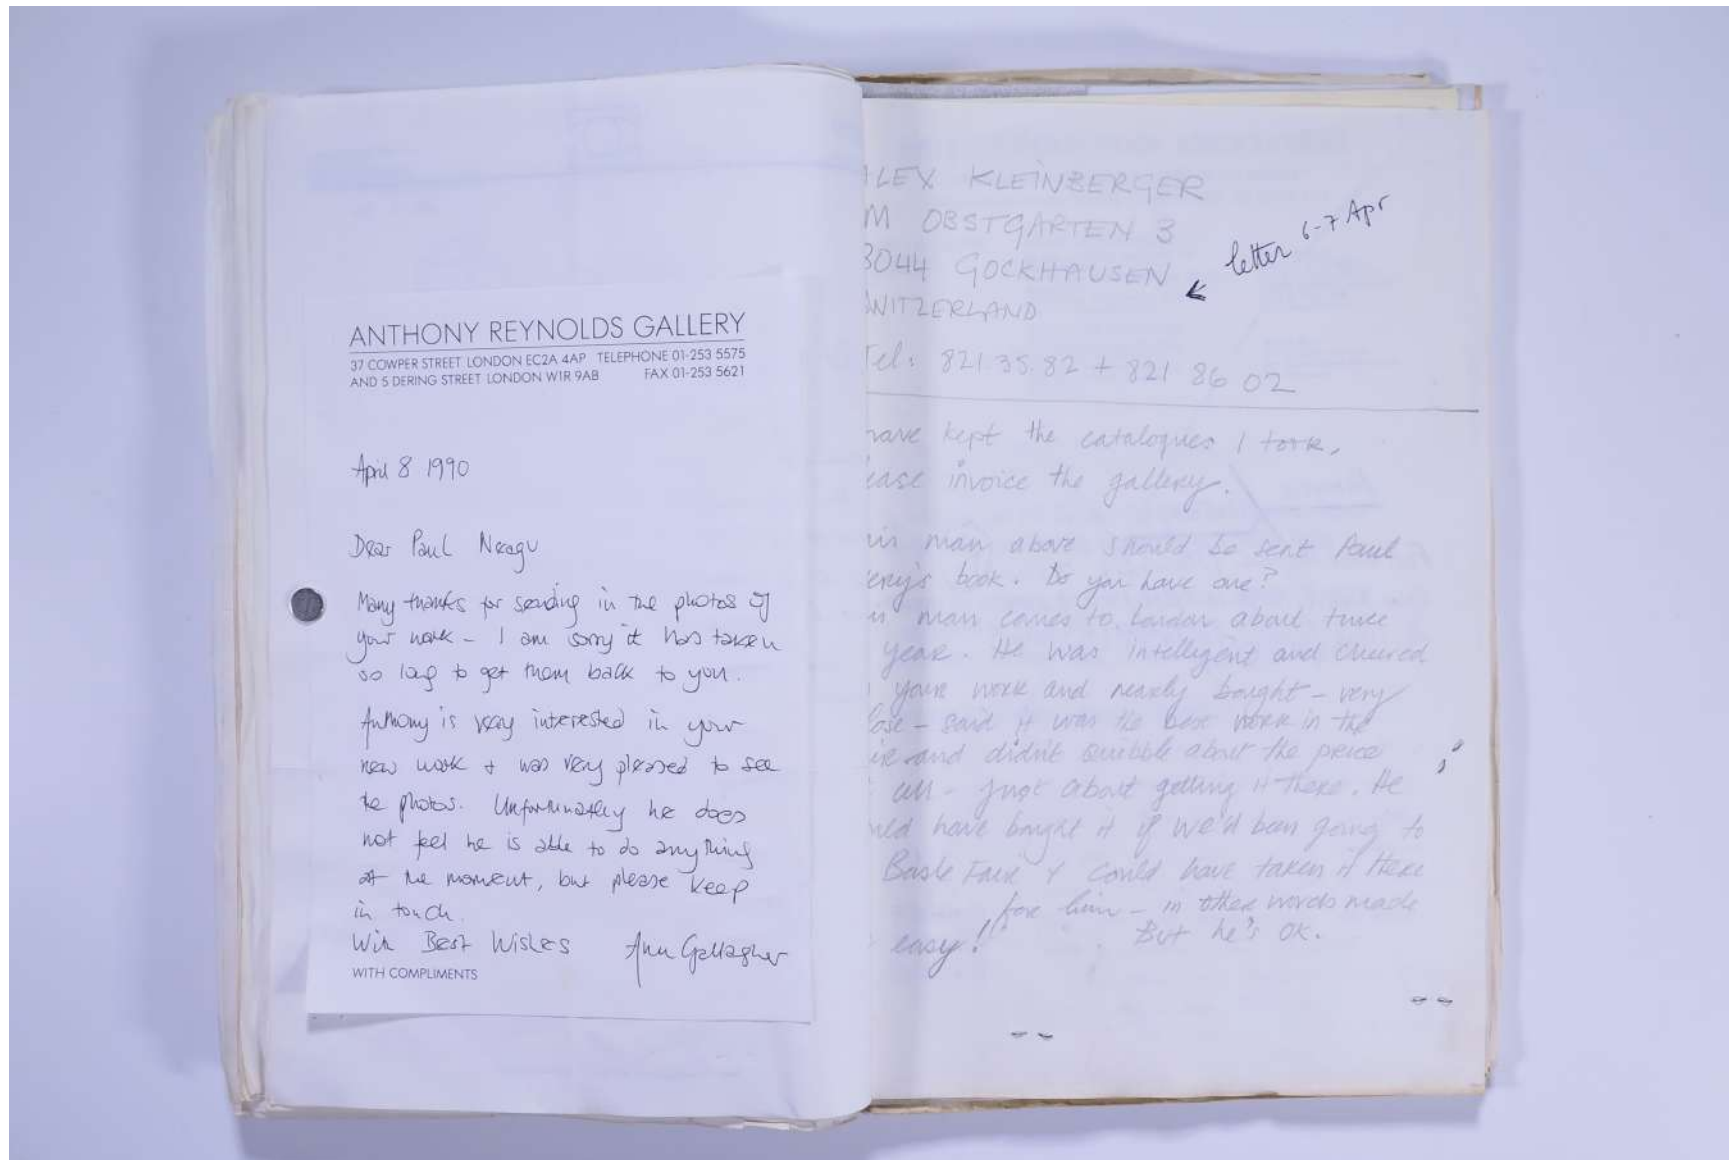 ANTHONY REYNOLDS GALLERY
37 COWPER STREET LONDON EC2A 4AP TELEPHONE 01-253 5575
AND 5 DERING STREET LONDON W1R 9AB FAX 01-253 5621
April 8 1990
Dear Paul Neagu
Many thanks for sending in the photos of
your work - I am sorry it has taken
so long to get them back to you.
Anthony is very interested in your
new work + was very pleased to see
the photos. Unfortunately he does
not feel he is able to do anything
at the moment, but please keep
in touch.
With Best Wishes Ann Gallagher
WITH COMPLIMENTS
LEX KLEINBERGER
M OBSTGARTEN 3
8044 GOCKHAUSEN
WITZERLAND
letter 6-7 Apr
Tel: 821.35.82 + 821 86 02
have kept the catalogues I took,
ease invoice the gallery.
is man above should be sent Paul
book. Do you have one?
man comes to London about twice
year. He was intelligent and
your work and nearly bought - very
ose - said it was the best work in the
and didn't quibble about the price
all - just about getting it there. He
uld have bought it if we'd been going to
Basle Fair & could have taken it there
for him - in other words made
easy! But he's OK.